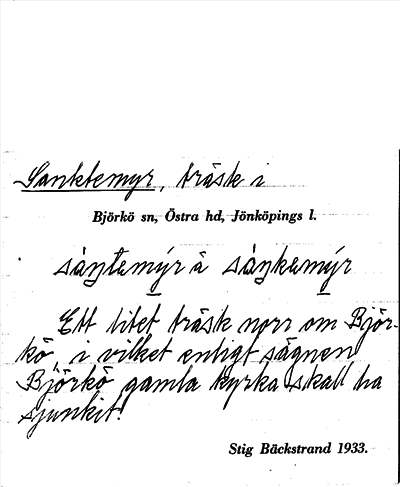 Sanktemyr, träsk i
Björkö sn, Östra hd, Jönköpings l.
sáŋtemýr å sáŋkemýr
Ett litet träsk norr om Björ-
kö, i vilket enligt sägnen
Björkö gamla kyrka skall ha
sjunkit.
Stig Bäckstrand 1933.